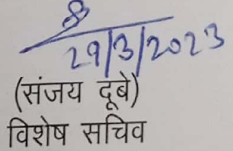 29/3/2023
(संजय दूबे)
विशेष सचिव